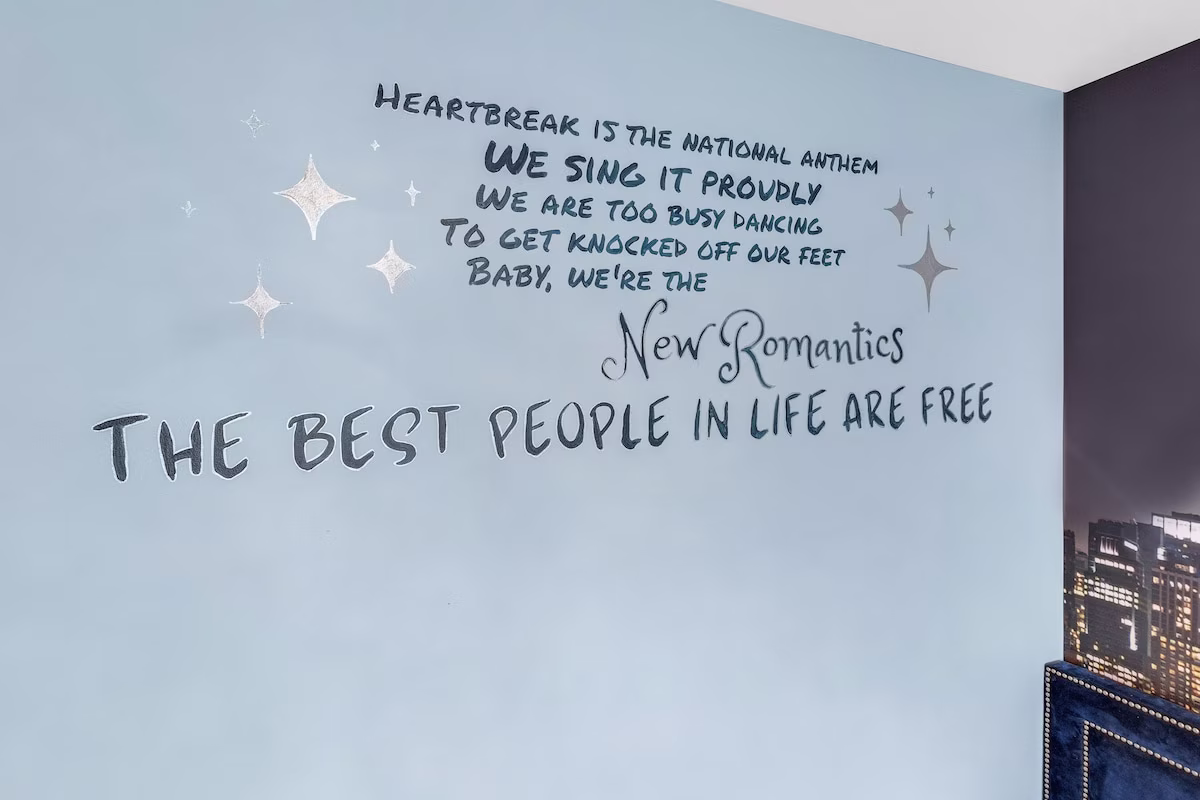 HEARTBREAK IS THE NATIONAL ANTHEM
WE SING IT PROUDLY
WE ARE TOO BUSY DANCING
TO GET KNOCKED OFF OUR FEET
BABY, WE'RE THE
New Romantics
THE BEST PEOPLE IN LIFE ARE FREE